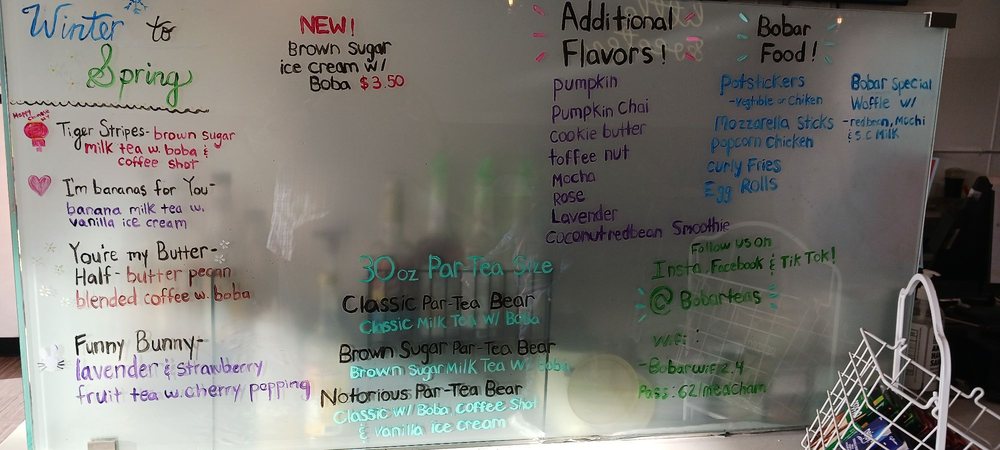 Winter to
Spring
Tiger Stripes- brown sugar
milk tea w. boba &
coffee shot
I'm bananas for You-
banana milk tea w.
vanilla ice cream
You're my Butter-
Half- butter pecan
blended coffee w. boba
Funny Bunny-
lavender & strawberry
fruit tea w. cherry popping
NEW!
Brown Sugar
ice cream w/
Boba $3.50
30oz Par-Tea Size
Classic Par-Tea Bear
Classic Milk Tea W/ Boba
Brown Sugar Par-Tea Bear
Brown Sugar Milk Tea W/ boba
Notorious Par-Tea Bear
Classic w/ Boba, coffee Shot
& vanilla ice cream
Additional
Flavors!
pumpkin
Pumpkin Chai
cookie butter
toffee nut
Mocha
Rose
Lavender
Coconut redbean Smoothie
Bobar
Food!
Potstickers
-vegtable or chiken
Mozzarella Sticks
popcorn chicken
curly Fries
Egg Rolls
Bobar Special
Waffle w/
-redbean, Mochi
& S.C Milk
Follow us on
Insta, Facebook & TikTok!
@ Bobarteas
wifi:
-Bobarwifi 2.4
Pass: 621meacham